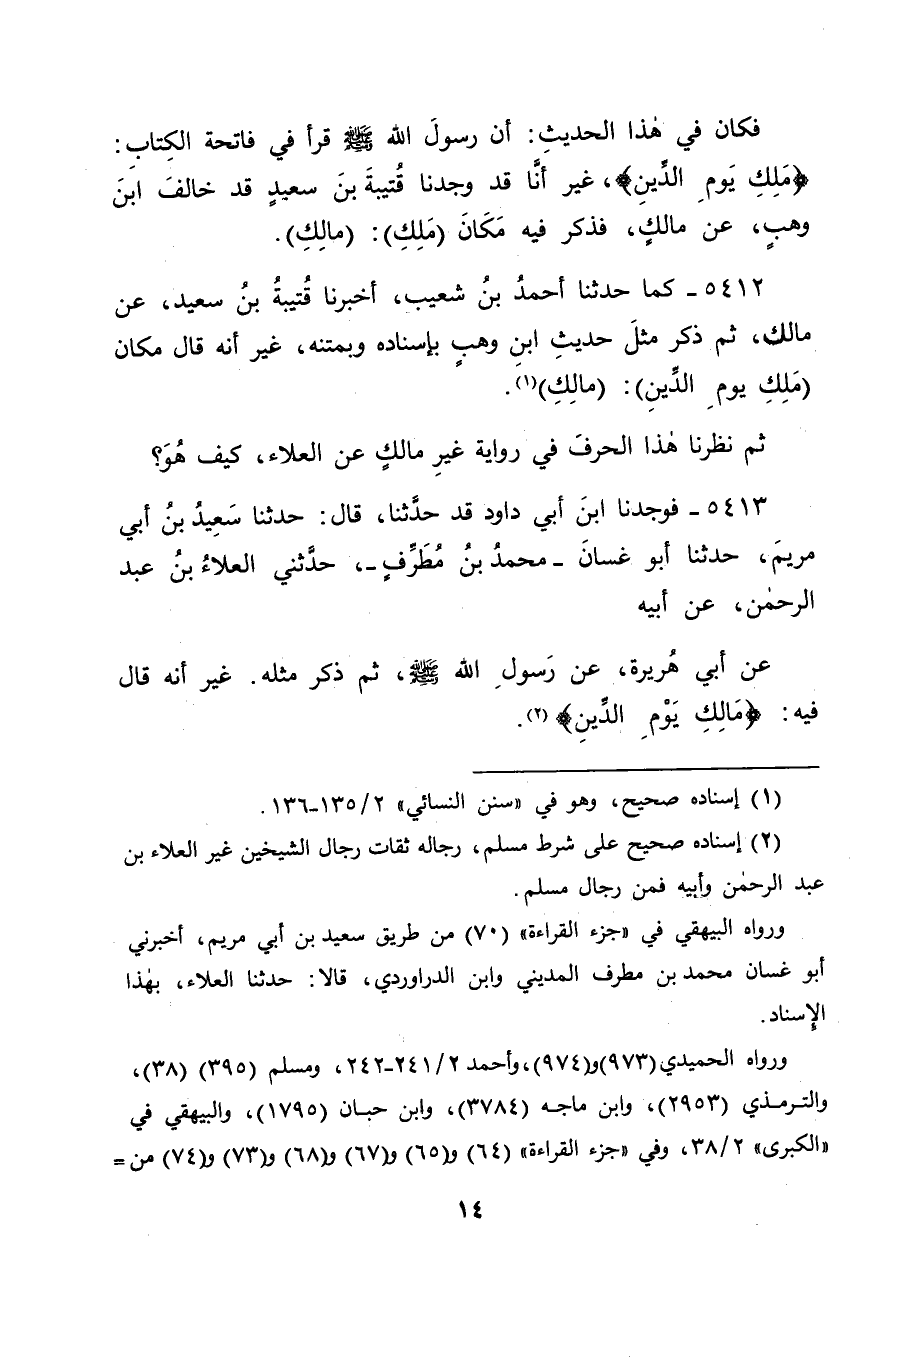 فكان في هٰذا الحديثِ: أن رسولَ الله ﷺ قرأ في فاتحة الكِتابِ:
﴿مَلِكِ يَومِ الدِّينِ﴾، غير أنَّا قد وجدنا قُتيبةَ بنَ سعيدٍ قد خالفَ ابنَ
وهبٍ، عن مالكٍ، فذكر فيه مَكَانَ (مَلِكِ): (مالِكِ).
٥٤١٢ ـ كما حدثنا أحمدُ بنُ شعيب، أخبرنا قُتيبةُ بنُ سعيد، عن
مالك، ثم ذكر مثلَ حديثِ ابنِ وهبٍ بإسناده وبمتنه، غير أنه قال مكان
(مَلِكِ يومِ الدِّينِ): (مالِكِ)(١).
ثم نظرنا هٰذا الحرفَ في رواية غيرِ مالكٍ عن العلاء، كيف هُوَ؟
٥٤١٣ ـ فوجدنا ابنَ أبي داود قد حدَّثنا، قال: حدثنا سَعِيدُ بنُ أبي
مريمَ، حدثنا أبو غسانَ ـ محمدُ بنُ مُطَرِّفٍ ـ، حدَّثني العلاءُ بنُ عبد
الرحمٰن، عن أبيه
عن أبي هُريرة، عن رَسولِ الله ﷺ، ثم ذكر مثله. غير أنه قال
فيه: ﴿مَالِكِ يَوْمِ الدِّينِ﴾(٢).
(١) إسناده صحيح، وهو في «سنن النسائي» ١٣٥/٢-١٣٦.
(٢) إسناده صحيح على شرط مسلم، رجاله ثقات رجال الشيخين غير العلاء بن
عبد الرحمٰن وأبيه فمن رجال مسلم.
ورواه البيهقي في «جزء القراءة» (٧٠) من طريق سعيد بن أبي مريم، أخبرني
أبو غسان محمد بن مطرف المديني وابن الدراوردي، قالا: حدثنا العلاء، بهٰذا
الإسناد.
ورواه الحميدي (٩٧٣) و(٩٧٤)، وأحمد ٢٤١/٢-٢٤٢، ومسلم (٣٩٥) (٣٨)،
والترمذي (٢٩٥٣)، وابن ماجه (٣٧٨٤)، وابن حبان (١٧٩٥)، والبيهقي في
«الكبرى» ٣٨/٢، وفي «جزء القراءة» (٦٤) و(٦٥) و(٦٧) و(٦٨) و(٧٣) و(٧٤) من =
١٤